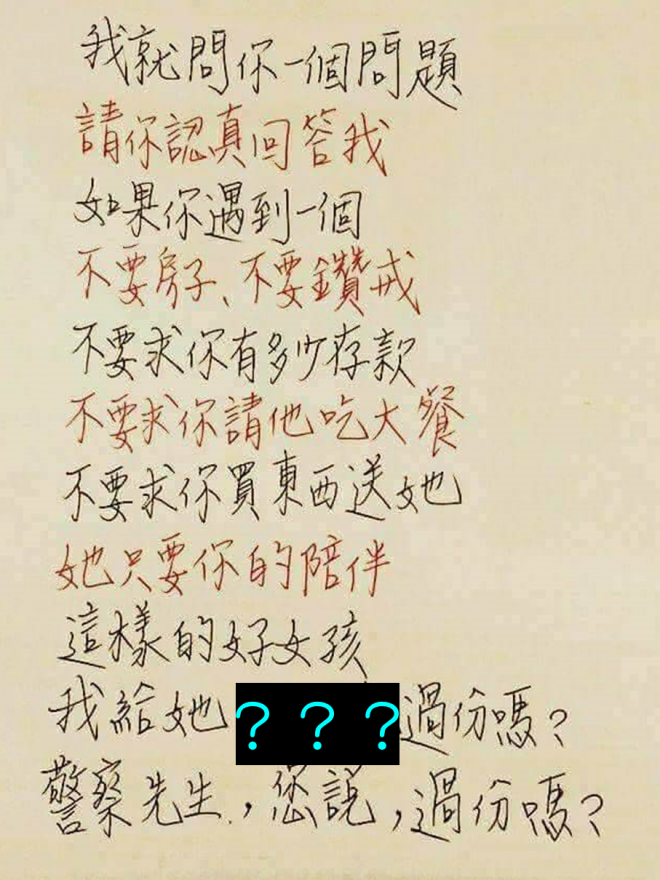 我就問你一個問題
請你認真回答我
如果你遇到一個
不要房子、不要鑽戒
不要求你有多少存款
不要求你請他吃大餐
不要求你買東西送她
她只要你的陪伴
這樣的好女孩
我給她？？？過份嗎？
警察先生，您說，過份嗎？